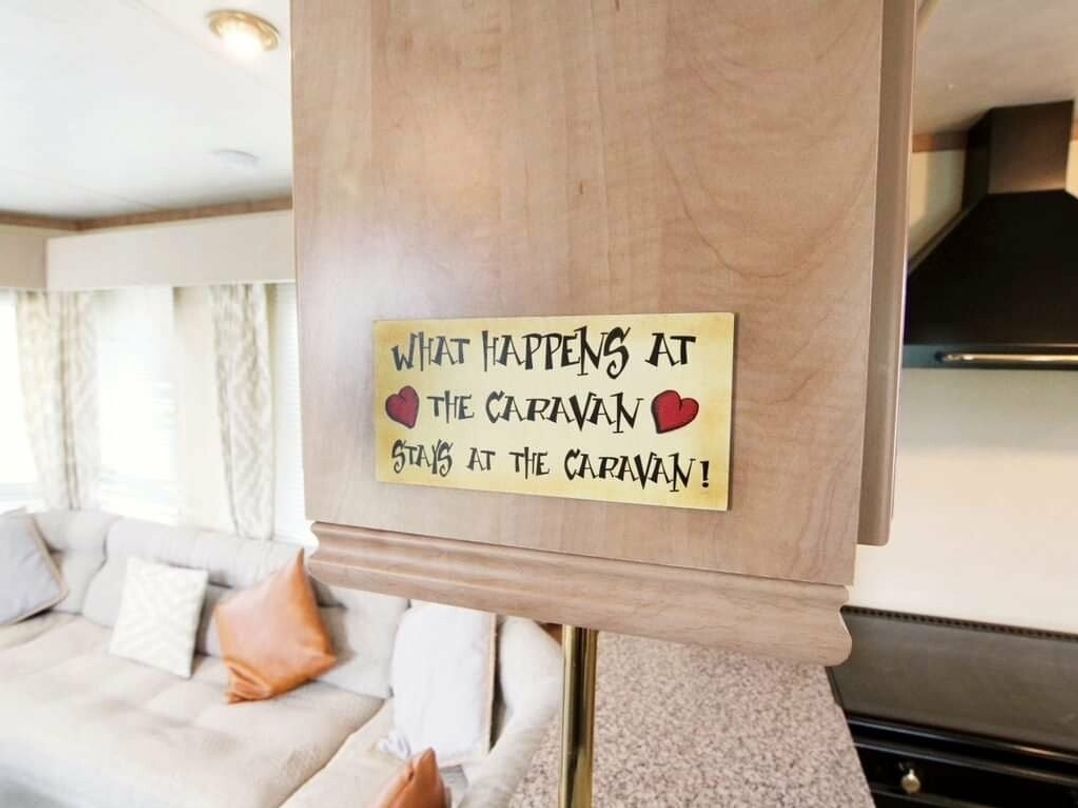 WHAT HAPPENS AT
THE CARAVAN
STAYS AT THE CARAVAN!